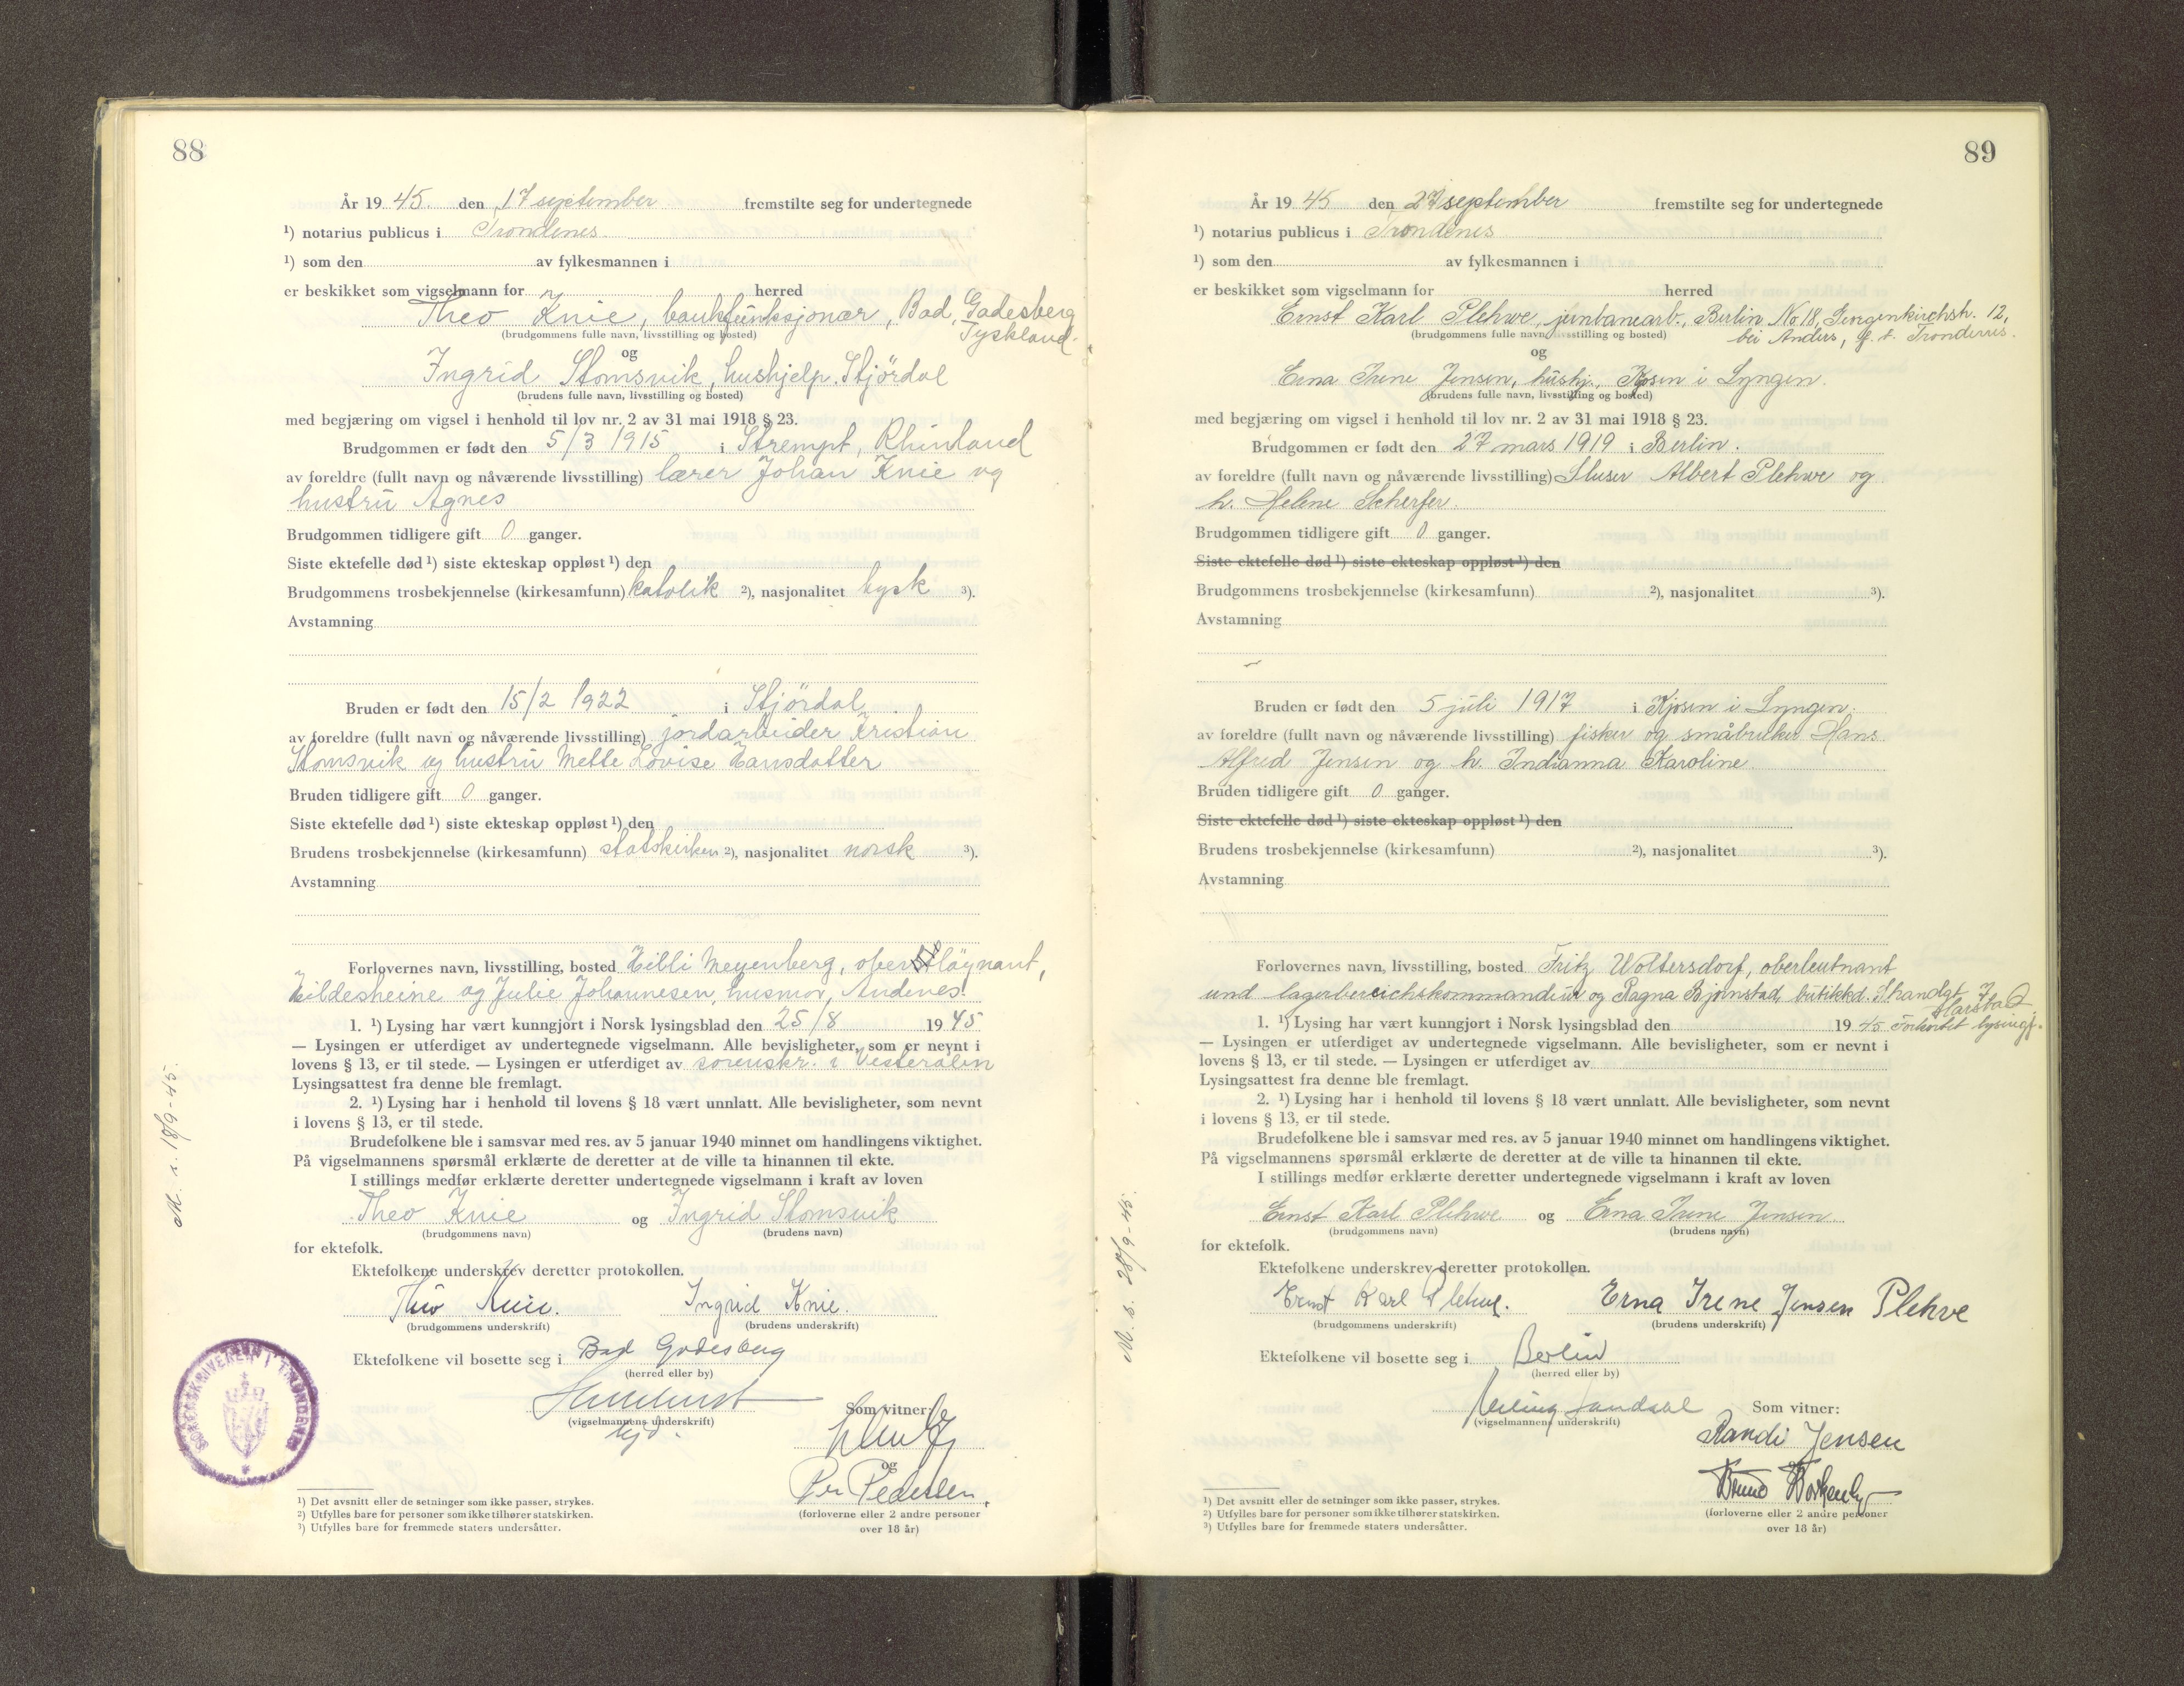 88
År 19 45. den 17 september fremstilte seg for undertegnede
¹) notarius publicus i Trondenes.
¹) som den av fylkesmannen i
er beskikket som vigselmann for herred
Theo Knie, bankfunksjonær, Bad Godesberg
(brudgommens fulle navn, livsstilling og bosted) Tyskland.
og
Ingrid Stomsvik, hushjelp. Stjördal
(brudens fulle navn, livsstilling og bosted)
med begjæring om vigsel i henhold til lov nr. 2 av 31 mai 1918 § 23.
Brudgommen er født den 5/3 1915 i Strempt, Rhinland
av foreldre (fullt navn og nåværende livsstilling) lærer Johan Knie og
hustru Agnes
Brudgommen tidligere gift 0 ganger.
Siste ektefelle død ¹) siste ekteskap oppløst ¹) den
Brudgommens trosbekjennelse (kirkesamfunn) katolik ²), nasjonalitet tysk ³).
Avstamning
Bruden er født den 15/2 1922 i Stjördal
av foreldre (fullt navn og nåværende livsstilling) jordarbeider Kristian
Stomsvik og hustru Mette Lovise Hansdatter
Bruden tidligere gift 0 ganger.
Siste ektefelle død ¹) siste ekteskap oppløst ¹) den
Brudens trosbekjennelse (kirkesamfunn) statskirken ²), nasjonalitet norsk ³).
Avstamning
Forlovernes navn, livsstilling, bosted Hilli Meyenberg, oberlöynant,
Hildesheine og Julie Johannesen, husmor, Andenes.
1. ¹) Lysing har vært kunngjort i Norsk lysingsblad den 25/8 1945
— Lysingen er utferdiget av undertegnede vigselmann. Alle bevisligheter, som er nevnt i
lovens § 13, er til stede. — Lysingen er utferdiget av sorenskr. i Vesterålen
Lysingsattest fra denne ble fremlagt.
2. ¹) Lysing har i henhold til lovens § 18 vært unnlatt. Alle bevisligheter, som nevnt
i lovens § 13, er til stede.
Brudefolkene ble i samsvar med res. av 5 januar 1940 minnet om handlingens viktighet.
På vigselmannens spørsmål erklærte de deretter at de ville ta hinannen til ekte.
I stillings medfør erklærte deretter undertegnede vigselmann i kraft av loven
Theo Knie og Ingrid Stomsvik
(brudgommens navn) (brudens navn)
for ektefolk.
Ektefolkene underskrev deretter protokollen.
Theo Knie. Ingrid Knie.
(brudgommens underskrift) (brudens underskrift)
Ektefolkene vil bosette seg i Bad Godesberg
(herred eller by)
Som vitner:
(vigselmannens underskrift)
og
Per Pedersen.
(forloverne eller 2 andre personer
over 18 år)
¹) Det avsnitt eller de setninger som ikke passer, strykes.
²) Utfylles bare for personer som ikke tilhører statskirken.
³) Utfylles bare for fremmede staters undersåtter.
SORENSKRIVEREN I TRONDENES
18/9-45.
89
År 19 45 den 27 september fremstilte seg for undertegnede
¹) notarius publicus i Trondenes
¹) som den av fylkesmannen i
er beskikket som vigselmann for herred
Ernst Karl Plehwe, jernbanearb., Berlin No 18, Georgenkirchstr. 12,
(brudgommens fulle navn, livsstilling og bosted) bei Anders, f. t. Trondenes.
og
Erna Irene Jensen, hushj., Kjosen i Lyngen.
(brudens fulle navn, livsstilling og bosted)
med begjæring om vigsel i henhold til lov nr. 2 av 31 mai 1918 § 23.
Brudgommen er født den 27 mars 1919 i Berlin.
av foreldre (fullt navn og nåværende livsstilling) Albert Plehwe og
h. Helene Scherfer.
Brudgommen tidligere gift 0 ganger.
Siste ektefelle død ¹) siste ekteskap oppløst ¹) den
Brudgommens trosbekjennelse (kirkesamfunn) ²), nasjonalitet ³).
Avstamning
Bruden er født den 5 juli 1917 i Kjosen i Lyngen.
av foreldre (fullt navn og nåværende livsstilling) fisker og småbruker Hans
Alfred Jensen og h. Indianna Karoline
Bruden tidligere gift 0 ganger.
Siste ektefelle død ¹) siste ekteskap oppløst ¹) den
Brudens trosbekjennelse (kirkesamfunn) ²), nasjonalitet ³).
Avstamning
Forlovernes navn, livsstilling, bosted Fritz Woltersdorf, oberleutnant
und lagerbereichskommandeur og Ragna Bjørnstad, butikkd. Strandgt 7 Harstad
1. ¹) Lysing har vært kunngjort i Norsk lysingsblad den 1945 Forkortet lysingsf.
— Lysingen er utferdiget av undertegnede vigselmann. Alle bevisligheter, som er nevnt i
lovens § 13, er til stede. — Lysingen er utferdiget av
Lysingsattest fra denne ble fremlagt.
2. ¹) Lysing har i henhold til lovens § 18 vært unnlatt. Alle bevisligheter, som nevnt
i lovens § 13, er til stede.
Brudefolkene ble i samsvar med res. av 5 januar 1940 minnet om handlingens viktighet.
På vigselmannens spørsmål erklærte de deretter at de ville ta hinannen til ekte.
I stillings medfør erklærte deretter undertegnede vigselmann i kraft av loven
Ernst Karl Plehwe og Erna Irene Jensen
(brudgommens navn) (brudens navn)
for ektefolk.
Ektefolkene underskrev deretter protokollen.
Ernst Karl Plehwe. Erna Irene Jensen Plehve
(brudgommens underskrift) (brudens underskrift)
Ektefolkene vil bosette seg i Berlin
(herred eller by)
Som vitner:
(vigselmannens underskrift)
Randi Jensen
Bruno
(forloverne eller 2 andre personer
over 18 år)
¹) Det avsnitt eller de setninger som ikke passer, strykes.
²) Utfylles bare for personer som ikke tilhører statskirken.
³) Utfylles bare for fremmede staters undersåtter.
28/9-45.